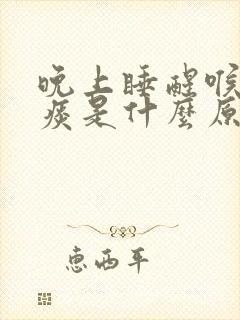 晚上睡醒喉
痰是什麼原
惠西平